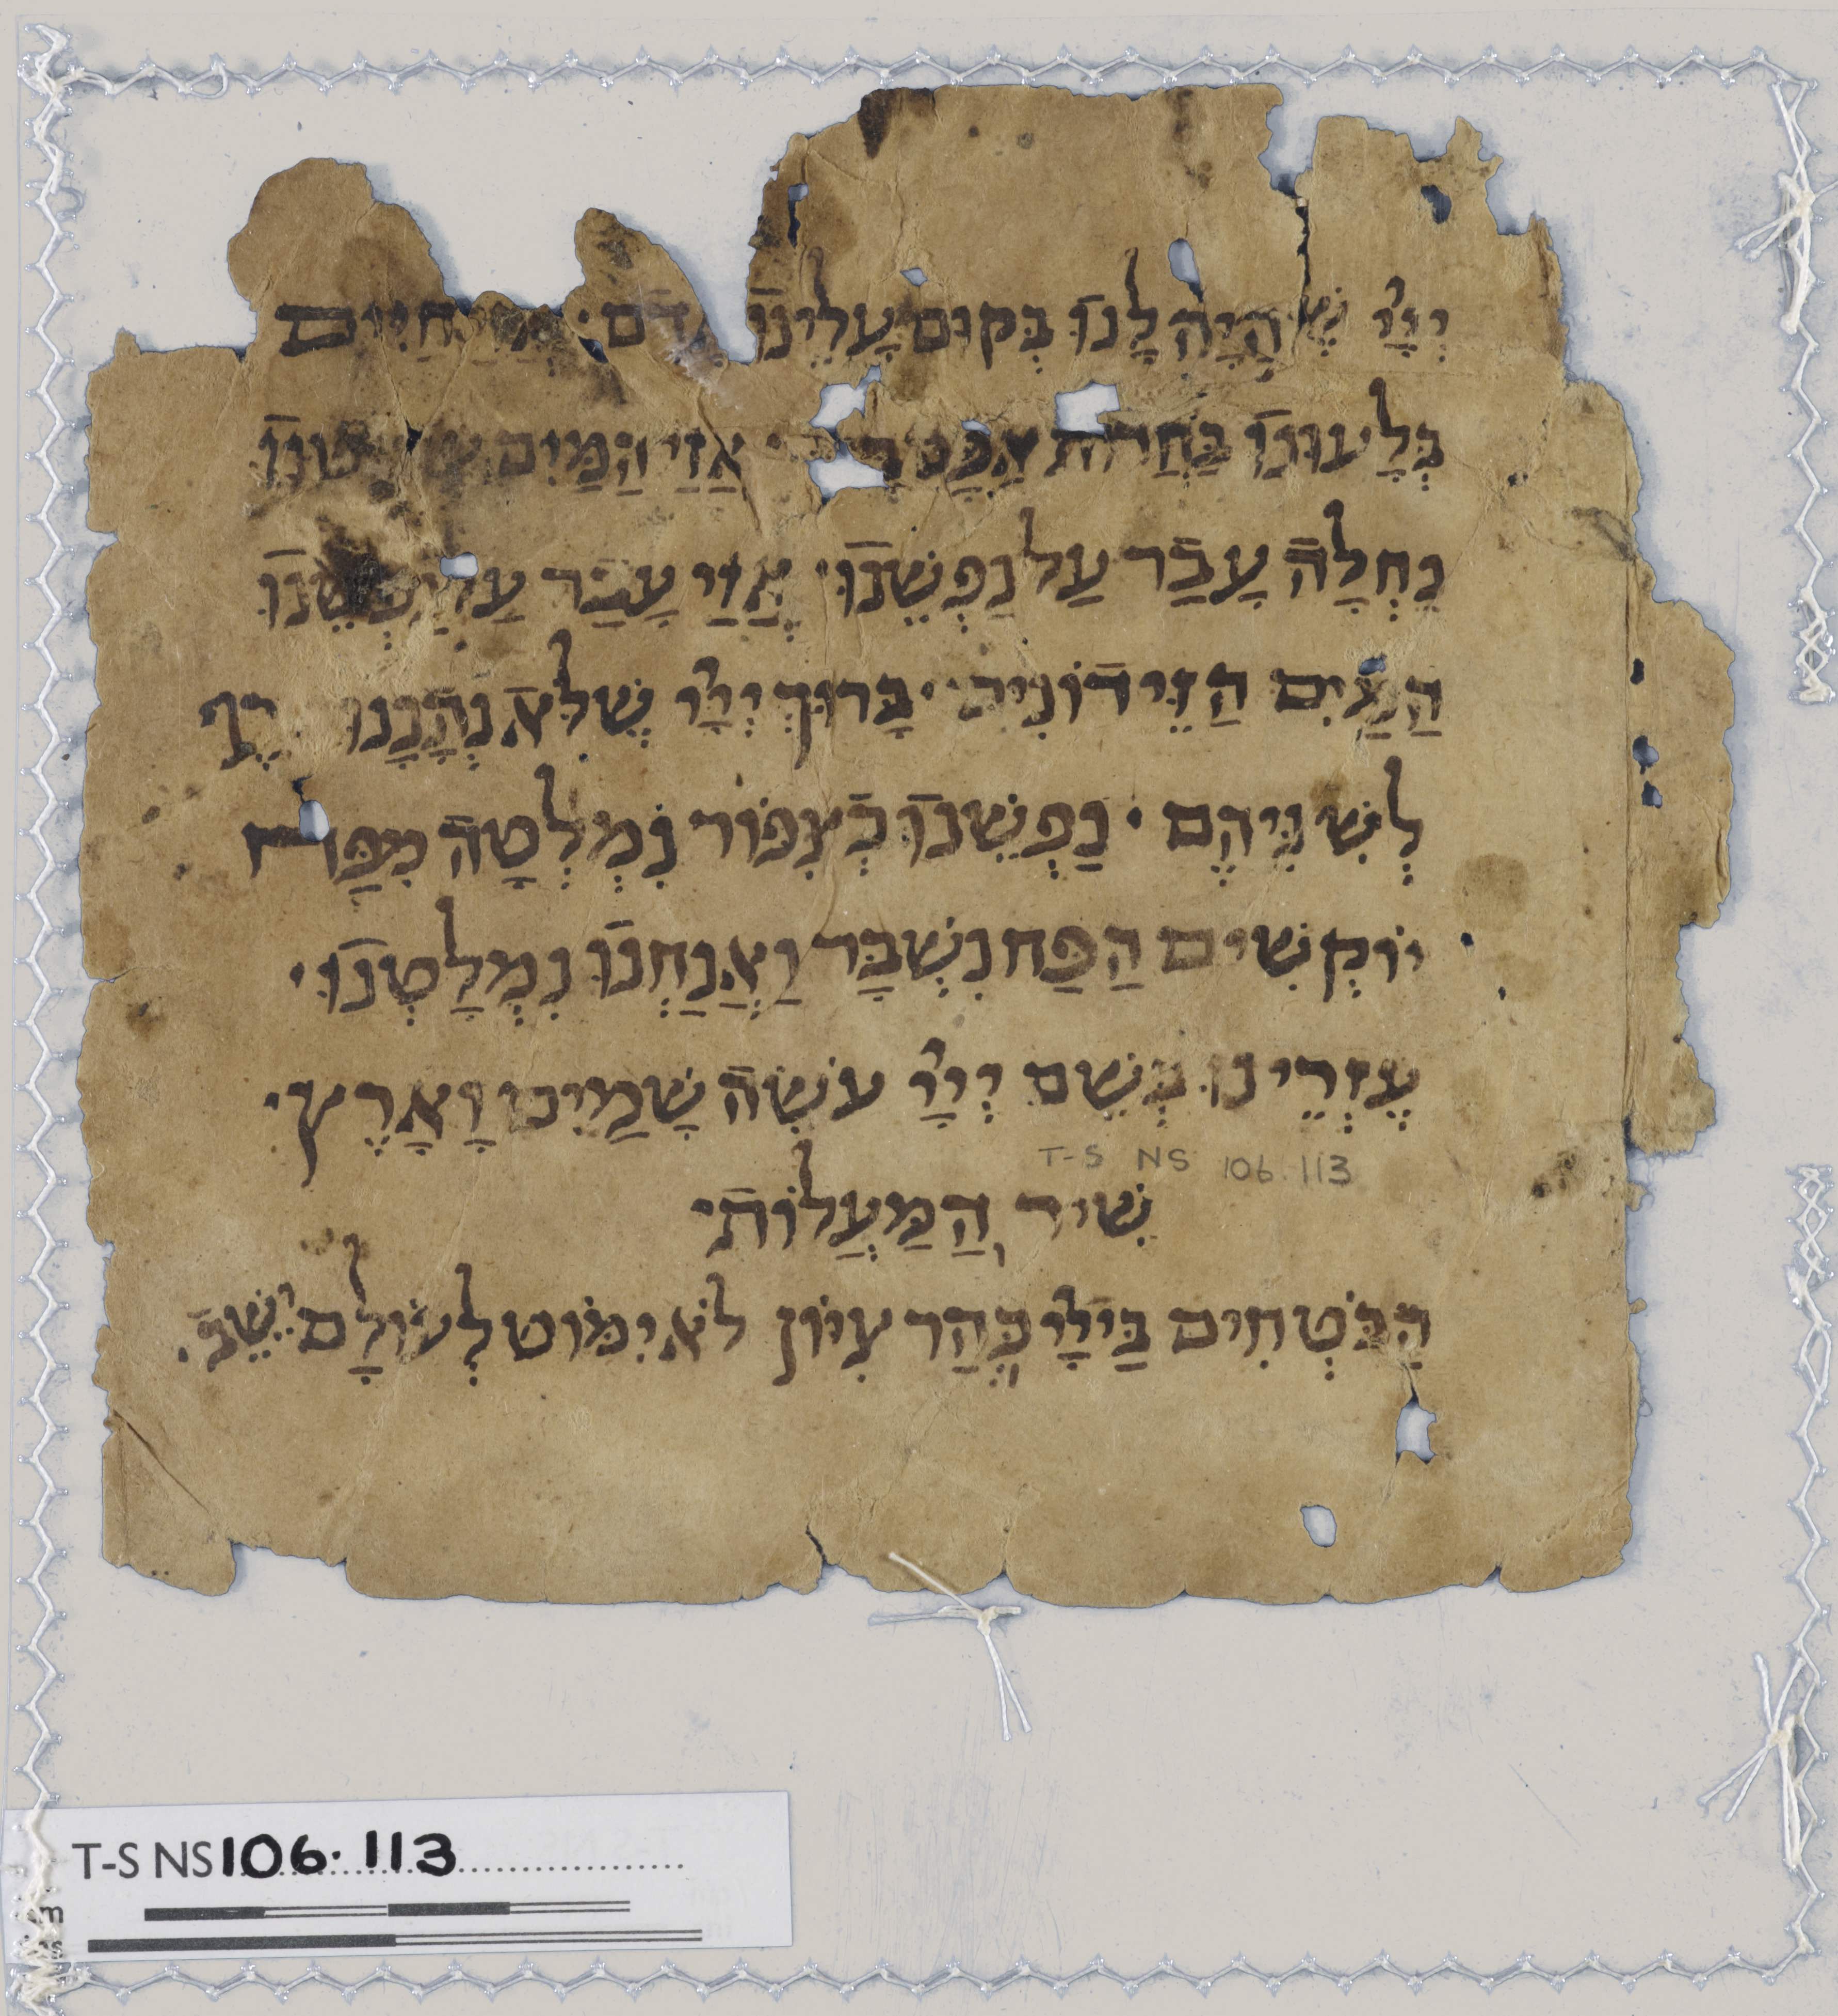 יְיָי שֶׁהָיָה לָנוּ בְּקוּם עָלֵינוּ אָדָם · אֲזַי חַיִּים
בְּלָעוּנוּ בַּחֲרֹת אַפָּם אֲזַי הַמַּיִם
נַחְלָה עָבַר עַל נַפְשֵׁנוּ · אֲזַי עָבַר עַל נַפְשֵׁנוּ
הַמַּיִם הַזֵּידוֹנִים · בָּרוּךְ יְיָי שֶׁלֹּא נְתָנָנוּ טֶרֶף
לְשִׁנֵּיהֶם · נַפְשֵׁנוּ כְּצִפּוֹר נִמְלְטָה מִפַּח
יוֹקְשִׁים הַפַּח נִשְׁבָּר וַאֲנַחְנוּ נִמְלָטְנוּ ·
עֶזְרֵינוּ בְּשֵׁם יְיָי עֹשֵׂה שָׁמַיִם וָאָרֶץ ·
T-S NS 106.113
שִׁיר הַמַּעֲלוֹת ·
הַבֹּטְחִים בַּייָי כְּהַר צִיּוֹן לֹא יִמּוֹט לְעוֹלָם יֵשֵׁב.
T-S NS 106.113
cm